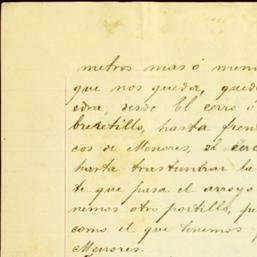 metros mas ó meno
que nos queda, qued
edra, desde El cerro ó
bretillo, hasta fren
cos de Menores, el cer
hasta trastumbrar la
te que pasa el arroyo
nemos otro portillo, p
como el que tenemos
Menores.